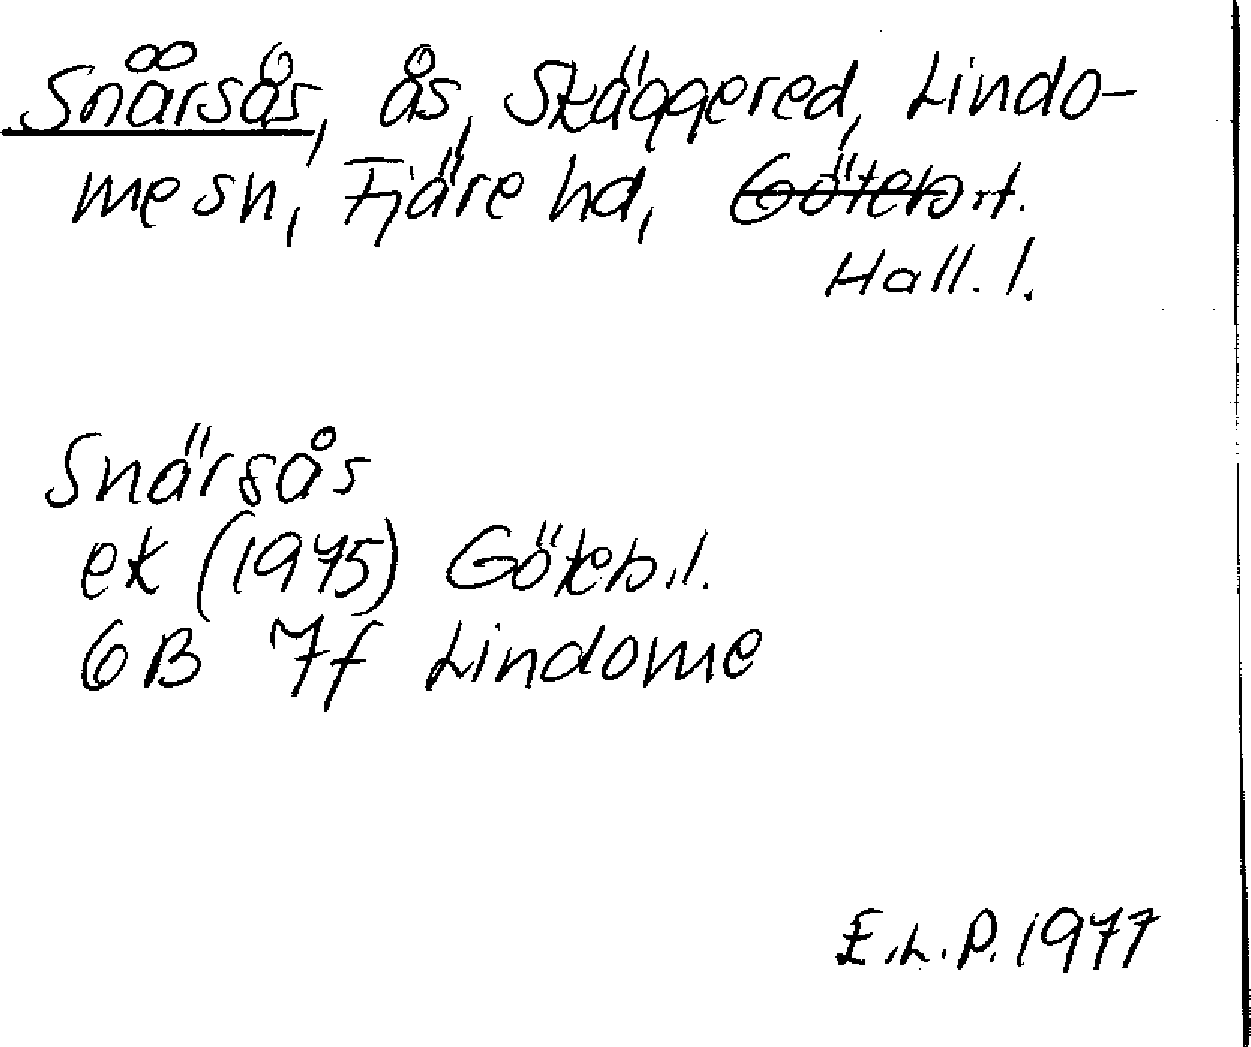 Snärsås, ås, Skäggered, Lindo-
me sn, Fjäre hd, Göteb.l.
Hall. l.
Snärsås
ek (1975) Göteb.l.
6B 7f Lindome
E.L.P. 1977